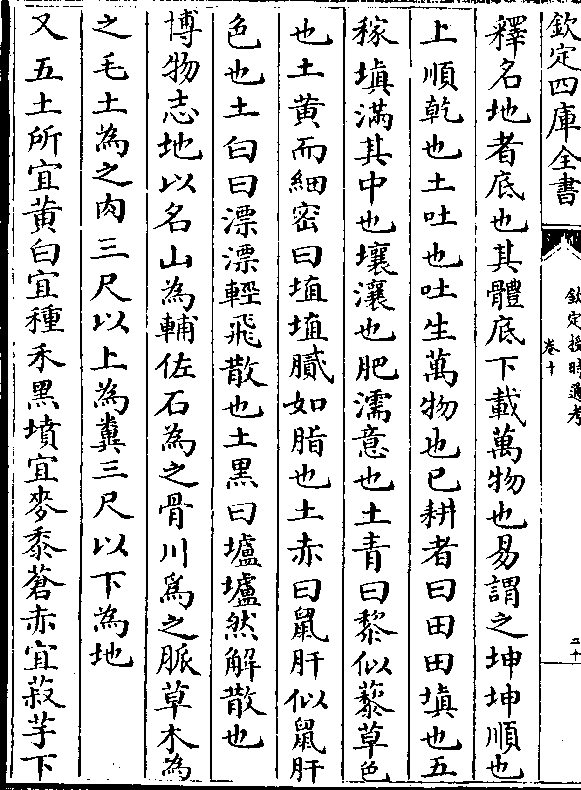 欽定四庫全書
欽定授時通考
卷十
二十
釋名地者底也其體底下載萬物也易謂之坤坤順也
上順乾也土吐也吐生萬物也已耕者曰田田填也五
稼填滿其中也壤瀼也肥濡意也土青曰黎似藜草色
也土黄而細密曰埴埴膱如脂也土赤曰鼠肝似鼠肝
色也土白曰漂漂輕飛散也土黒曰壚壚然解散也
博物志地以名山為輔佐石為之骨川為之脈草木為
之毛土為之肉三尺以上為糞三尺以下為地
又五土所宜黄白宜種禾黒墳宜麥黍蒼赤宜菽芋下